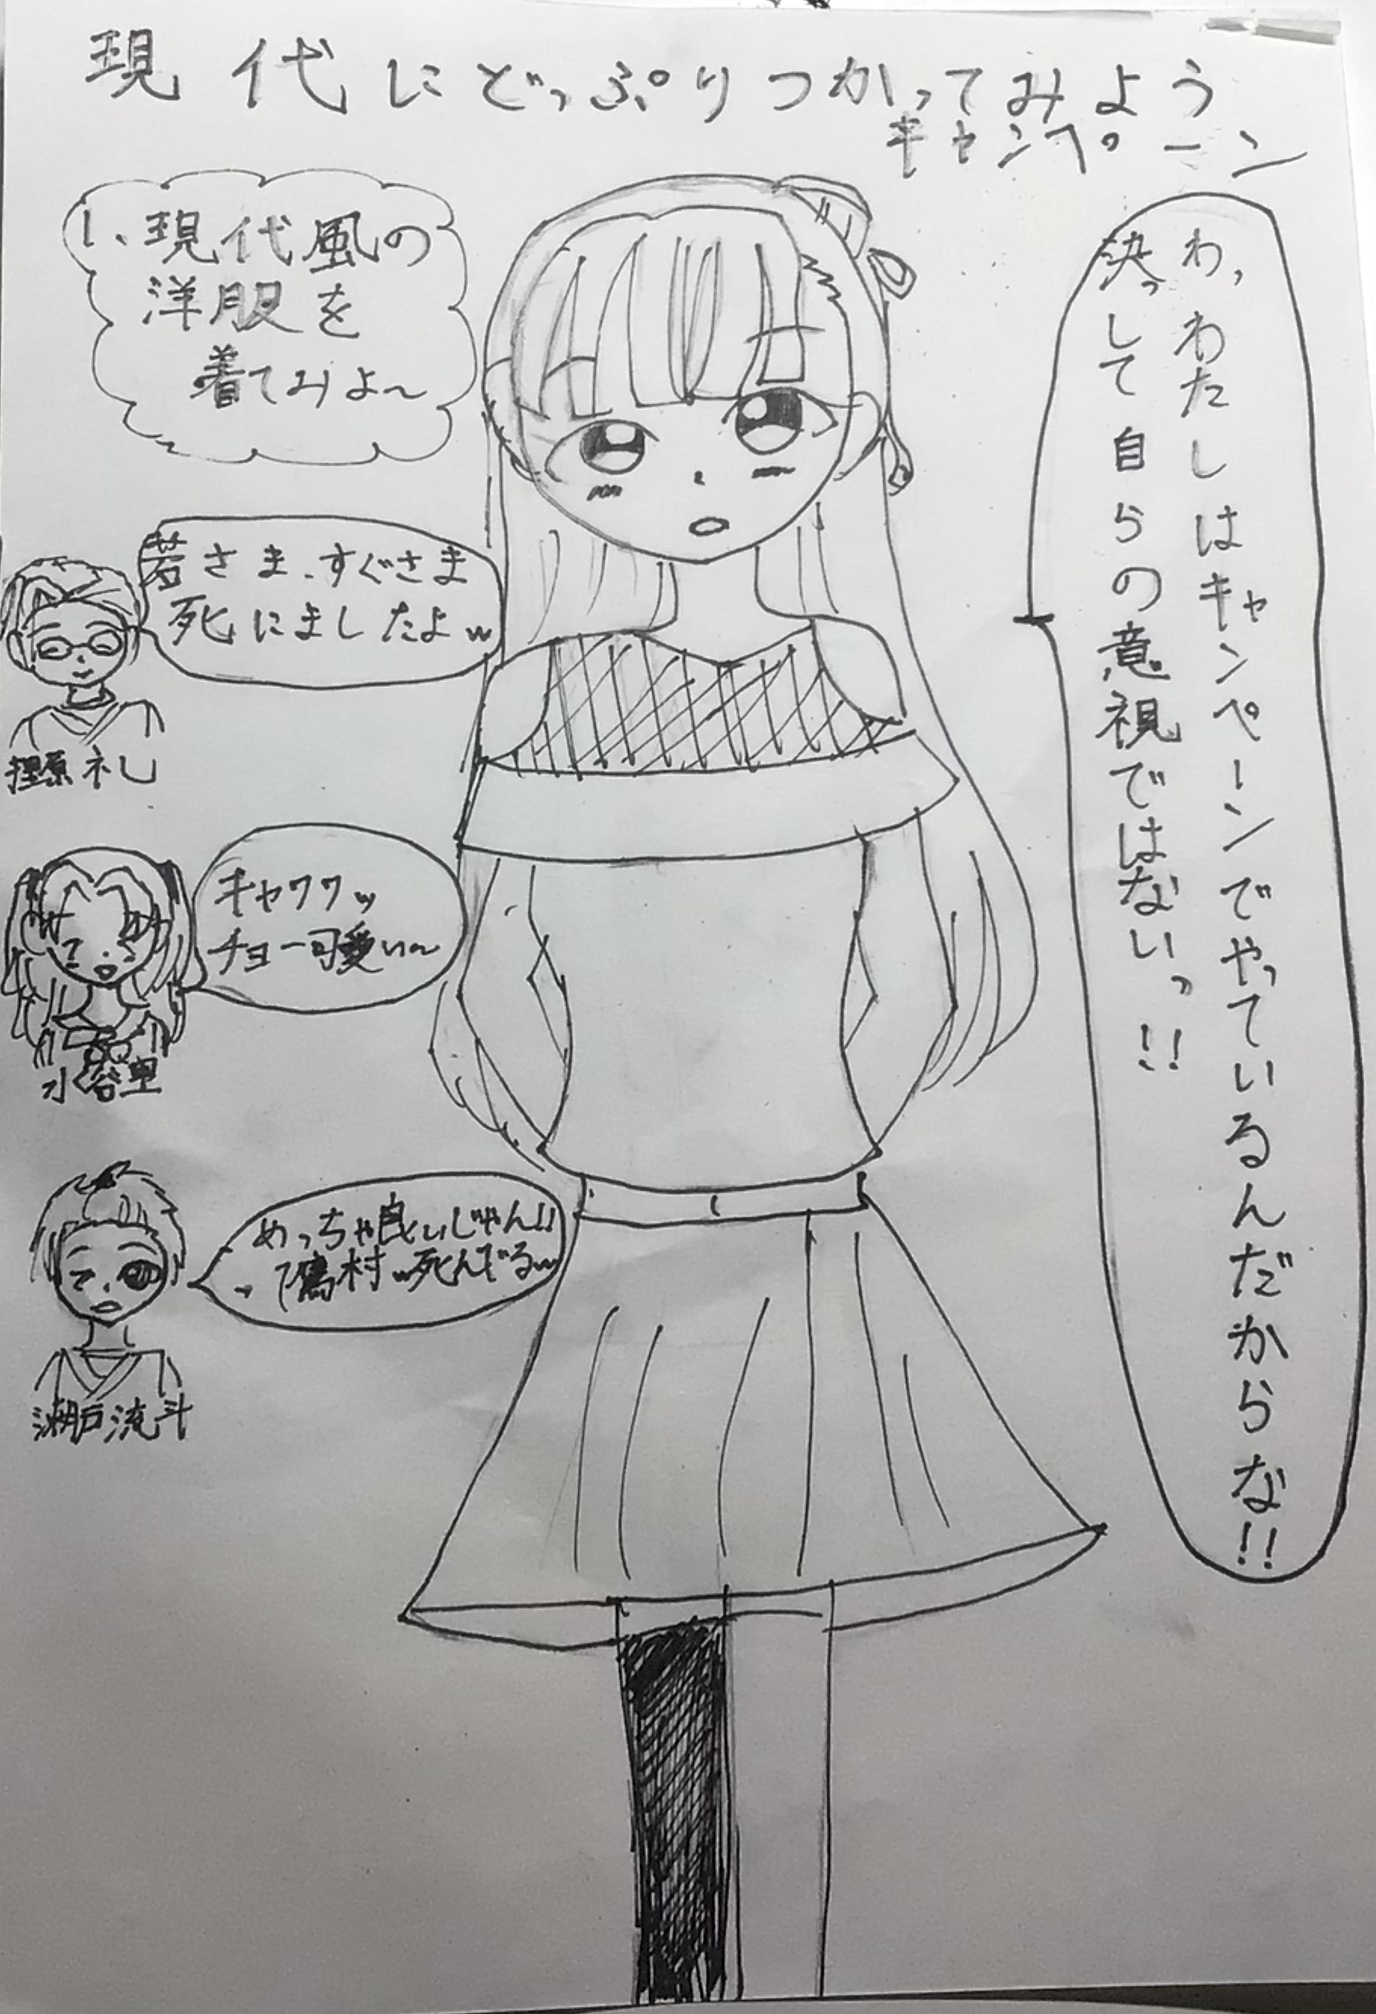 現代にどっぷりつかってみよう
キャンペーン
1、現代風の
洋服を
着てみよ〜
わ、わたしはキャンペーンでやっているんだからな!!
決っして自らの意視ではないっ!!
若さま、すぐさま
死にましたよw
樫原 礼
キャワワッ
チョー可愛い〜
水谷里
めっちゃ良いじゃん!!
鷹村w死んでるw
瀬戸流斗